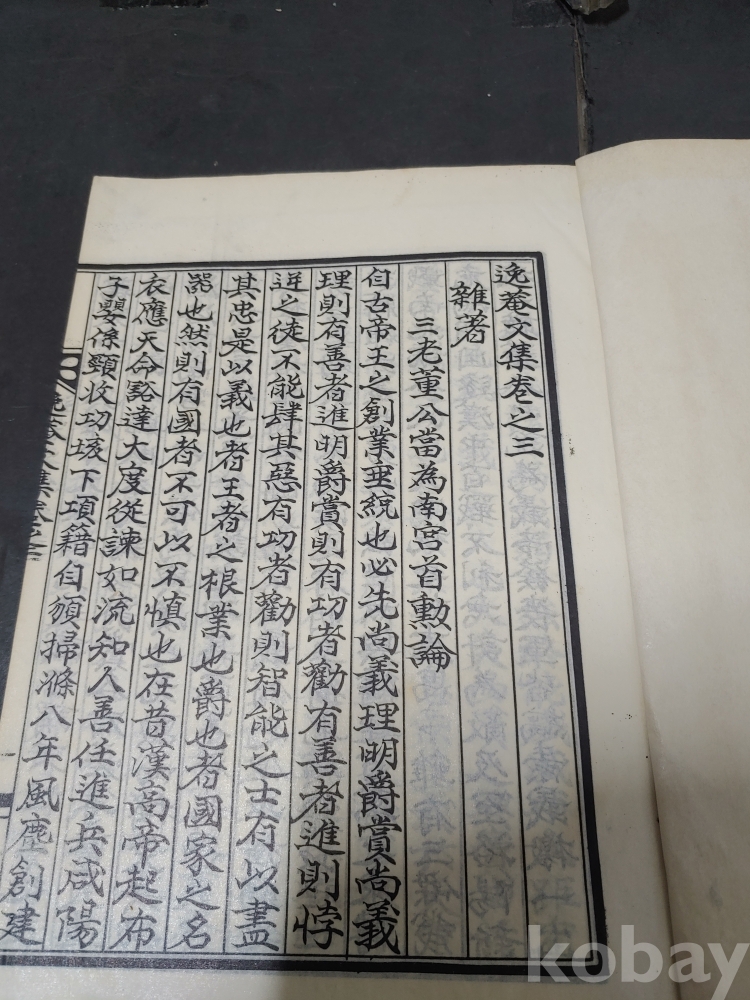 逸菴文集卷之三
雜著
三老董公當為南宮首勳論
自古帝王之創業垂統也必先尚義理明爵賞尚義
理則有善者進明爵賞則有功者勸有善者進則悖
逆之徒不能肆其惡有功者勸則智能之士有以盡
其忠是以義也者王者之根業也爵也者國家之名
器也然則有國者不可以不慎也在昔漢高帝起布
衣應天命豁達大度從諫如流知人善任進兵咸陽
子嬰係頸收功垓下項籍自頒掃滌八年風塵創建
逸菴文集卷之三
一
kobay